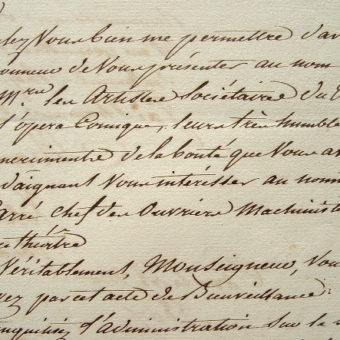 lez Vous bien me permettre d'av
onneur de Vous présenter au nom
Mrs. les Artistes Sociétaires du
l'opéra Comique, leurs très humble
ercimente de la bonté que Vous av
daignant Vous intéresser au nomm
Carré chef des Ouvriers Machinist
ce théâtre
Véritablement, Monseigneur, Vou
ez par cet acte de Bienveillance
d'administration sur la